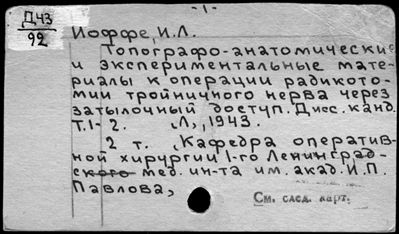 - 1 -
Д43
92
Иоффе, И.Л.
Топографо-анатомические
и экспериментальные мате-
риалы к операции радикото-
мии тройничного нерва через
затылочный доступ. Дисс. канд.
Т.1- 2. Л., 1943.
2 т. (Кафедра оператив-
ной хирургии 1-го Ленинград-
ского мед. ин-та им. акад. И.П.
Павлова,
См. след. карт.